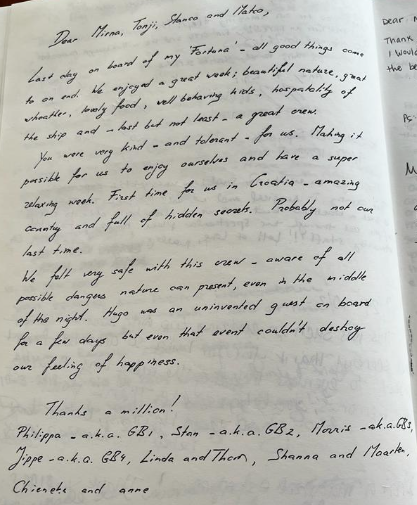 Dear Mirna, Tonji, Stanco and Matco,
Last day on board of my 'Fortuna' - all good things come
to an end. We enjoyed a great week; beautiful nature, great
wheatler, lovely food, well behaving kids, hospotality of
the ship and - last but not least - a great crew.
You were very kind - and tolerant - for us. Making it
possible for us to enjoy ourselves and have a super
relaxing week. First time for us in Croatia - amazing
country and full of hidden secrets. Probably not our
last time.
We felt very safe with this crew - aware of all
possible dangers nature can present, even in the middle
of the night. Hugo was an uninvented guest on board
for a few days but even that event couldn't destroy
our feeling of happiness.
Thanks a million!
Philippa - a.k.a. GB1, Stan - a.k.a. GB2, Morris - a.k.a. GB3,
Jippe - a.k.a. GB4, Linda and Thom, Shanna and Maarten,
Chieneke and anne
Dear
Thank
I Would
the be
Ps